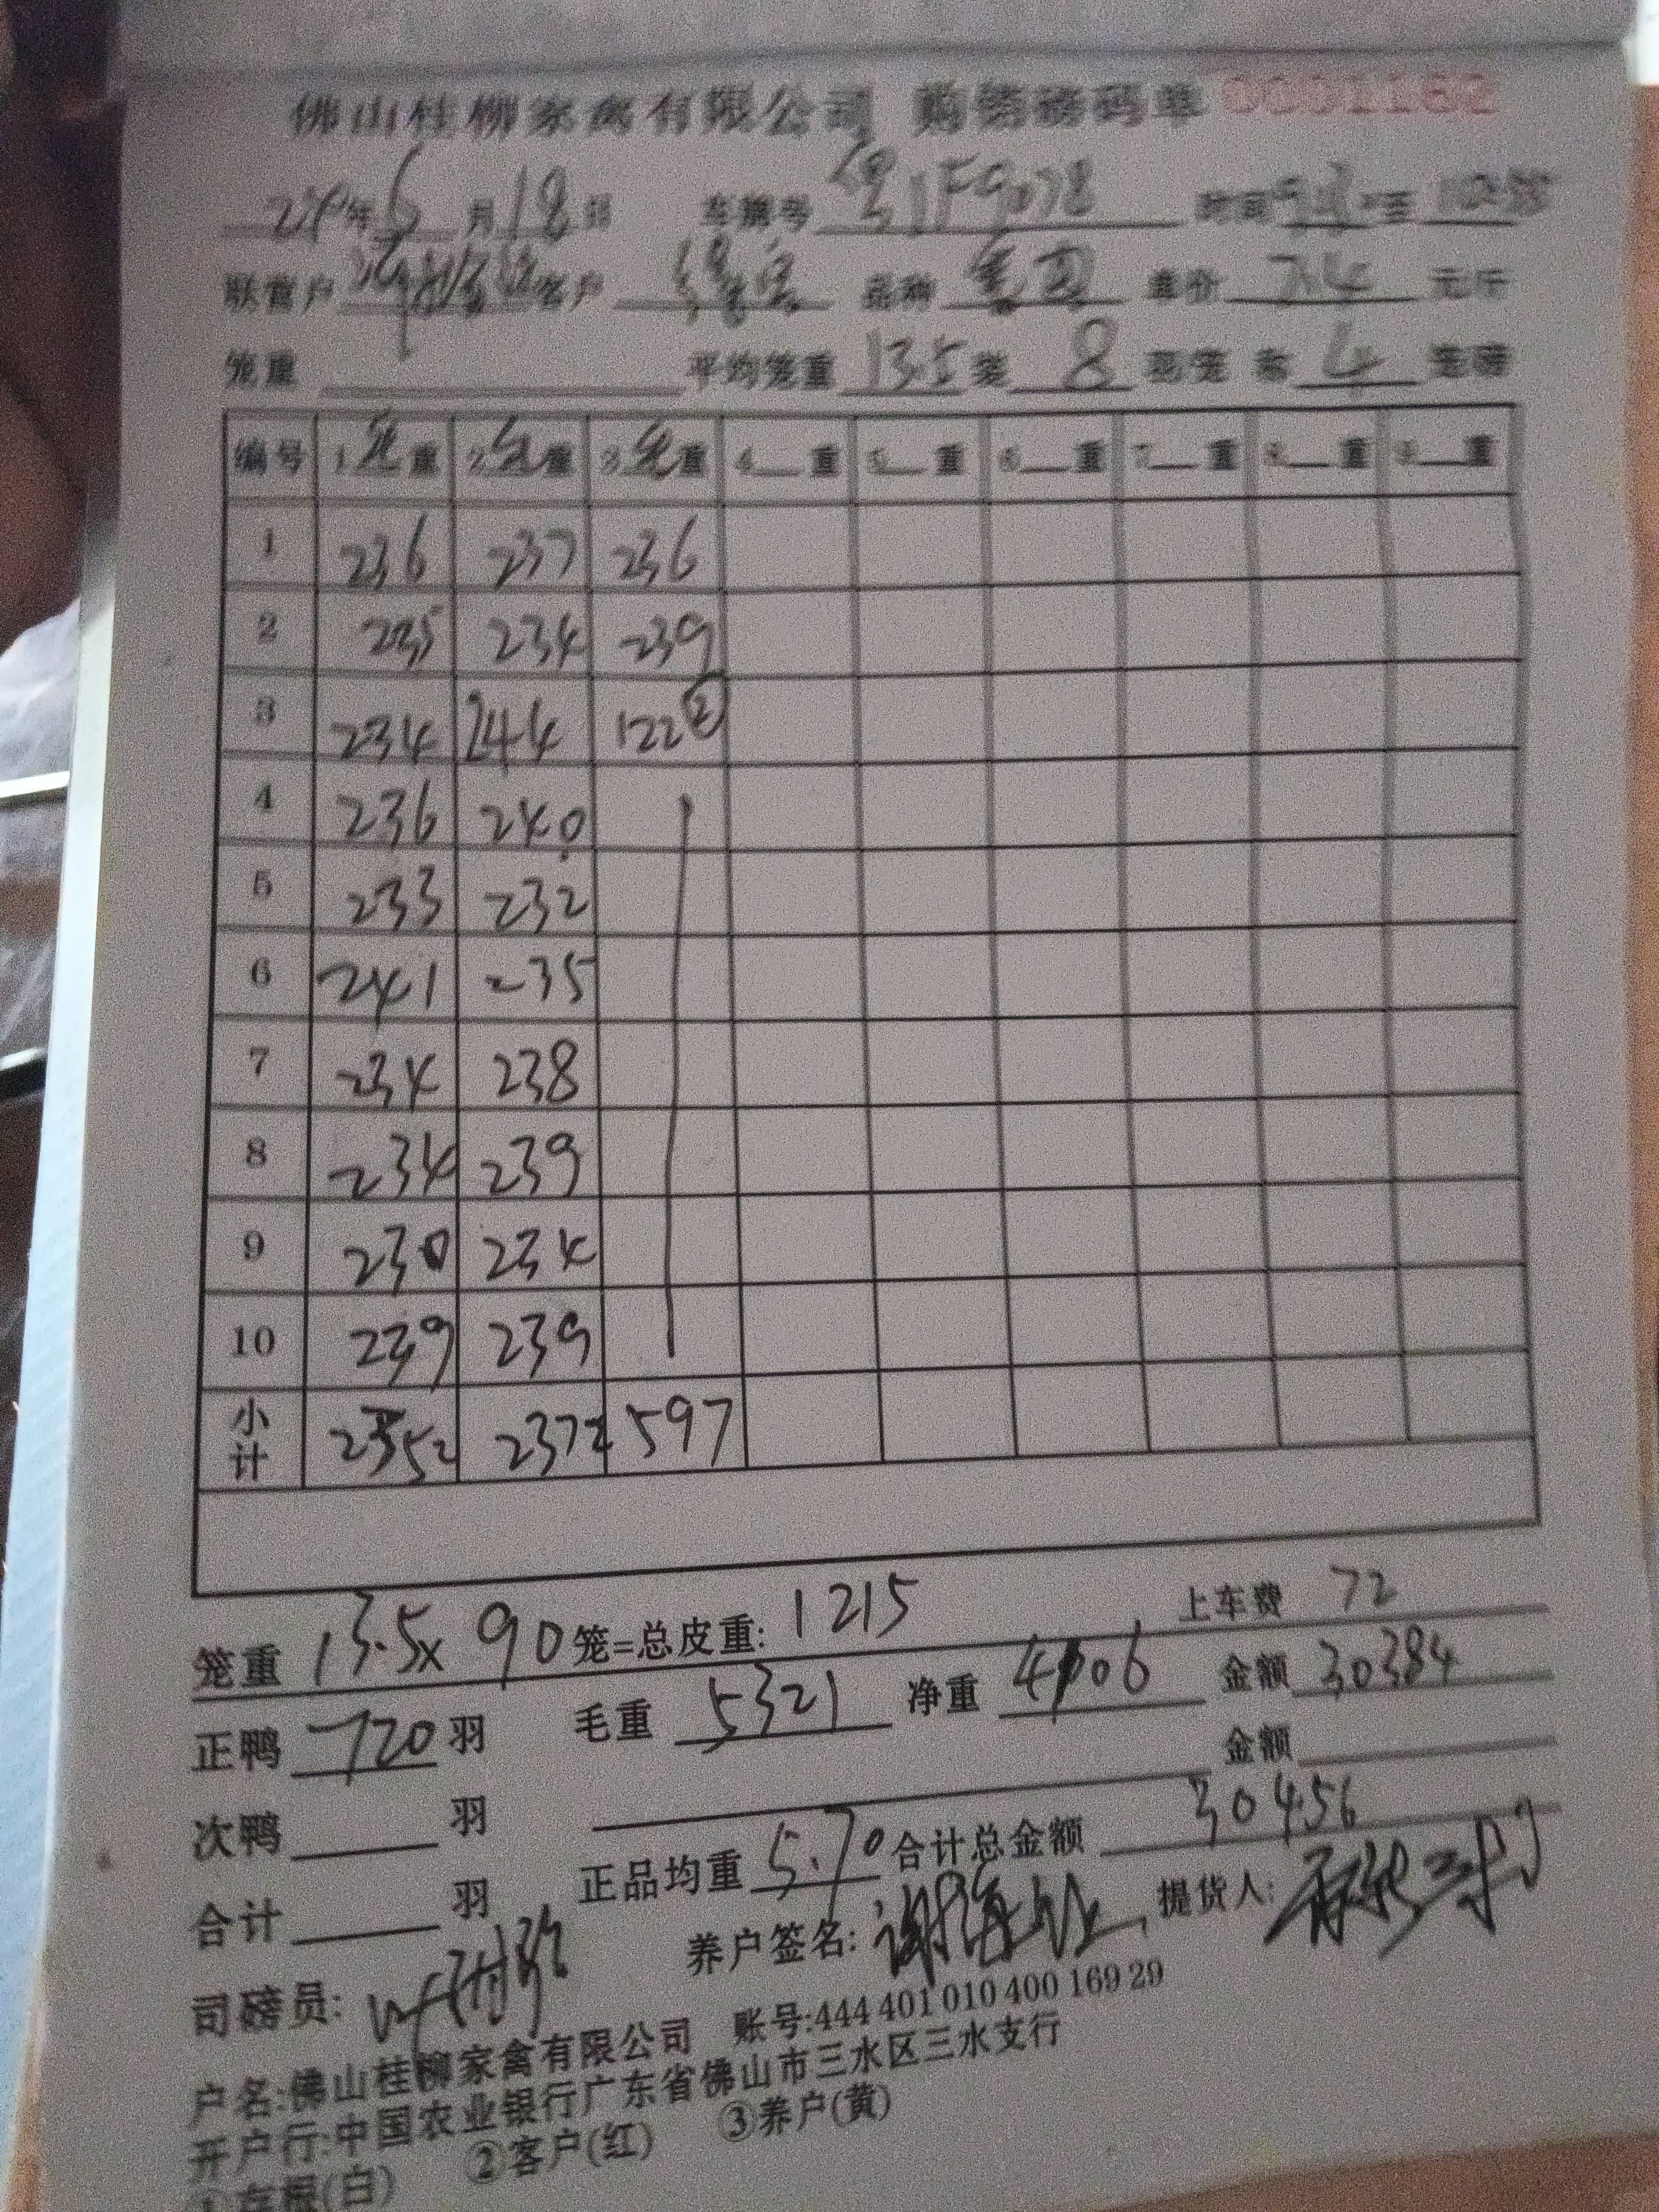 佛山桂柳家禽有限公司 购销磅码单 0001162
年 6 月 18 日 车编号 时间 至
联营户 客户 品种 单价 7.4 元/斤
笼重 平均笼重 13.5 装 8 羽/笼 每 4 笼磅
编号 1 毛 重 2 毛 重 3 毛 重 4 重 5 重 6 重 7 重 8 重 9 重
1 236 237 236
2 235 234 239
3 234 244 122 ②
4 236 240
5 233 232
6 241 235
7 234 238
8 234 239
9 230 234
10 239 239
小计 2352 2372 597
笼重 13.5 x 90 笼=总皮重: 1215 上车费 72
正鸭 720 羽 毛重 5321 净重 4106 金额 30384
次鸭 羽 金额
合计 羽 正品均重 5.70 合计总金额 30456
司磅员: 养户签名: 提货人:
户名:佛山桂柳家禽有限公司 账号:444 401 010 400 169 29
开户行:中国农业银行广东省佛山市三水区三水支行
①存根(白) ②客户(红) ③养户(黄)